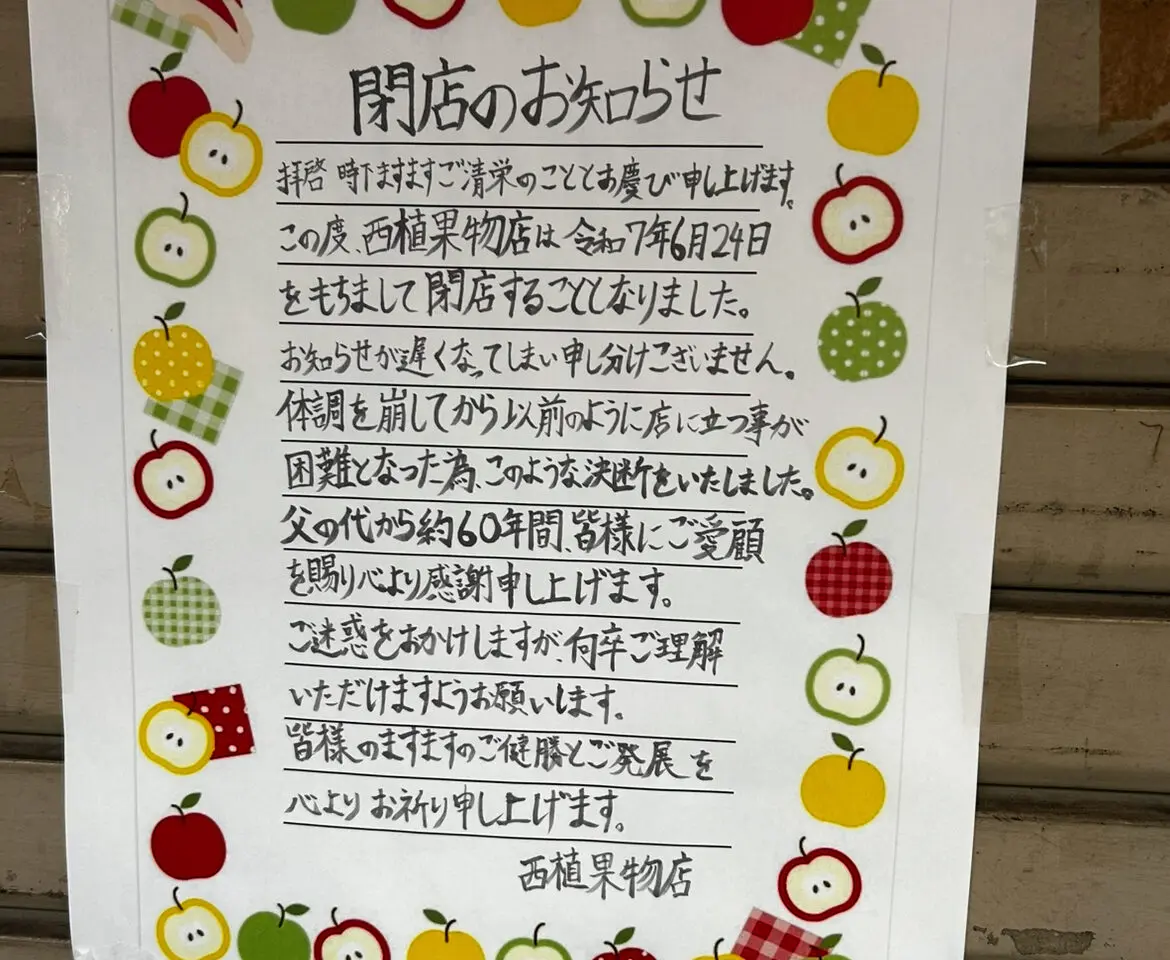 閉店のお知らせ
拝啓 時下ますますご清栄のこととお慶び申し上げます。
この度、西植果物店は令和7年6月24日
をもちまして閉店することとなりました。
お知らせが遅くなってしまい申し分けございません。
体調を崩してから以前のように店に立つ事が
困難となった為、このような決断をいたしました。
父の代から約60年間、皆様にご愛顧
を賜り心より感謝申し上げます。
ご迷惑をおかけしますが、何卒ご理解
いただけますようお願いします。
皆様のますますのご健勝とご発展を
心よりお祈り申し上げます。
西植果物店